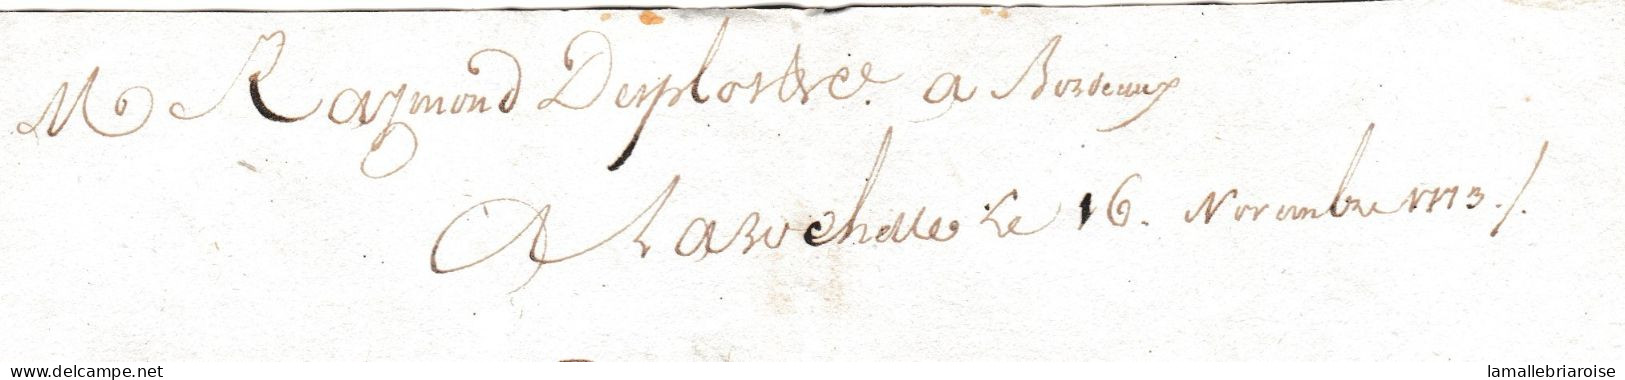 M Raymond a Bordeaux
A Larochelle Le 16. Novembre 1773./.
www.delcampe.net
lamallebriaroise